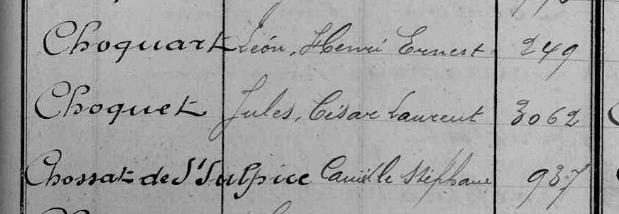 Choquart Léon, Henri Ernest 249
Choquet Jules, César Laurent 3062
Chossat de St Sulpice Camille Stéphane 937